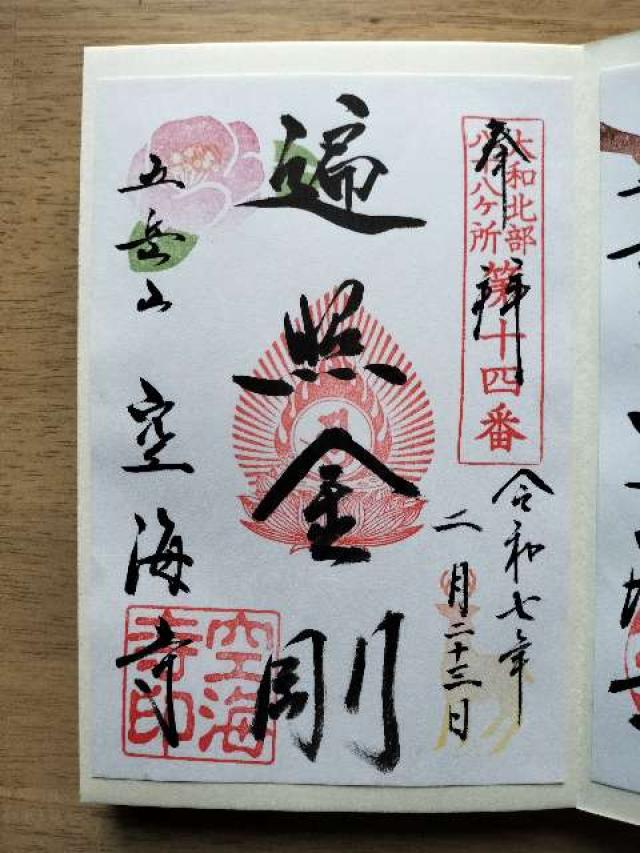 奉拝
大和北部
八十八ケ所
第十四番
令和七年
二月二十三日
遍照金剛
五岳山 空海寺
空海
寺印